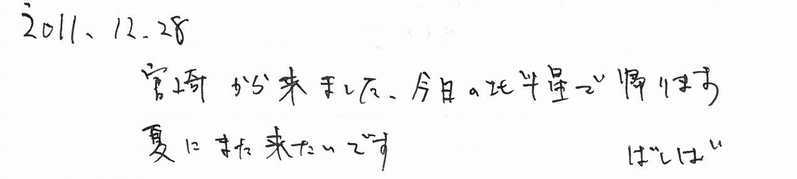 2011.12.28
宮崎から来ました、今日の北斗星で帰ります
夏にまた来たいです ばしば